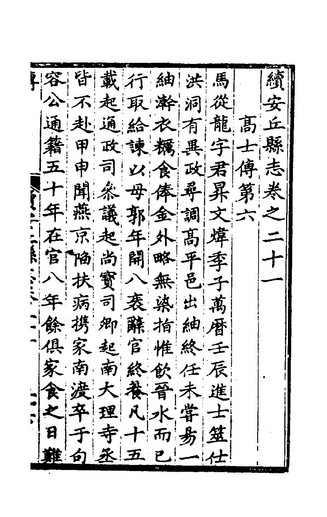 續安丘縣志卷之二十一
高士傳第六
馬從龍字君昇文煒季子萬曆壬辰進士筮仕
洪洞有異政尋調高平邑出紬終任未嘗易一
紬澣衣糲食俸金外略無染指惟飲晉水而已
行取給諫以母郭年開八袠辭官終養凡十五
載起通政司叅議起尚寶司卿起南大理寺丞
皆不赴甲申聞燕京陷扶病携家南渡卒于句
容公通籍五十年在官八年餘俱家食之日難